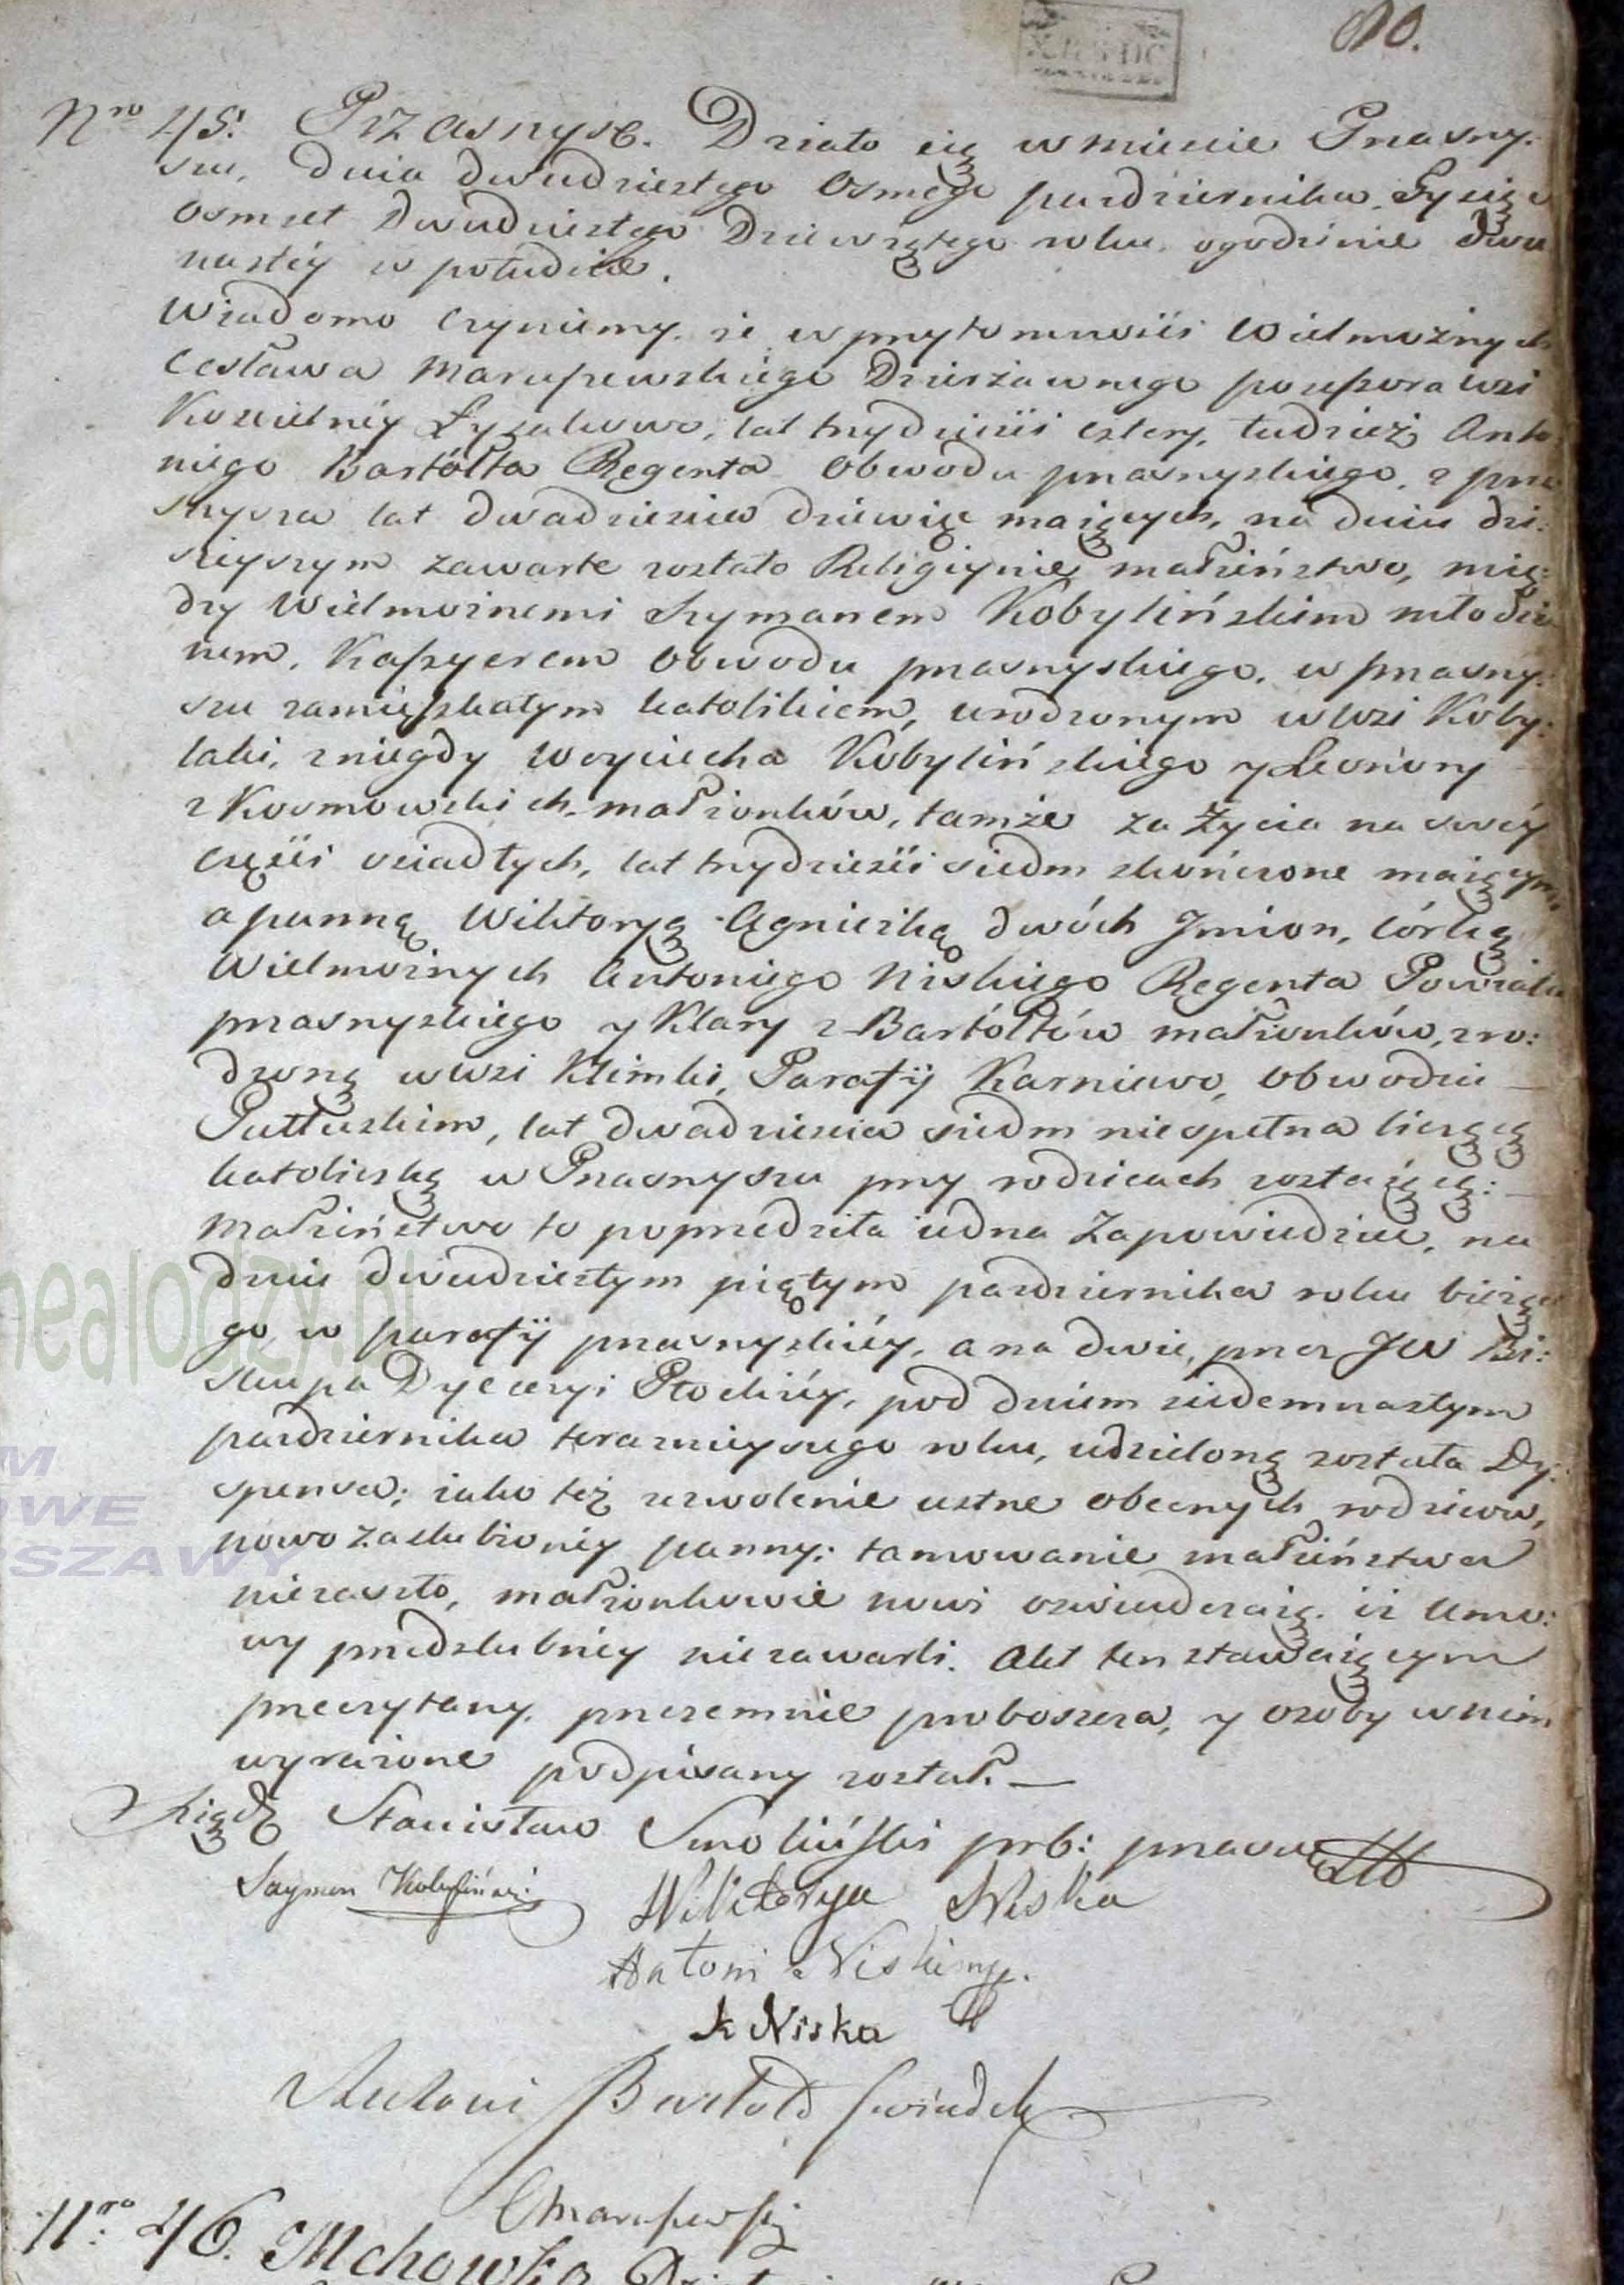 80.
Nro 45. Przasnysz. Działo się w mieście Przasny:
szu, dnia dwudziestego osmego pazdziernika, Tysiąc
osmset dwudziestego Dziewiątego roku, o godzinie dwu
nastéy w południe.
Wiadomo czyniemy, że w przytomności Wielmożnych
Cesława Maruszewskiego Dzierżawnego possessora wsi
Koscielnéy Łysakowo, lat trzydzieści cztery, tudzież Anto
niego Bartółta Regenta Obwodu przasnyskiego, z prza
snysza lat dwadzieścia dziewięć maiących, na dniu dzi:
sieyszym zawarte zostało Religiynie małżeństwo, mię:
dzy Wielmożnemi Szymanem Kobylińskim młodzia
nem, Kassyerem Obwodu przasnyskiego, w przasny:
szu zamięszkałym katolikiem, urodzonym w wsi Koby:
laki, z niegdy Woyciecha Kobylińskiego y Leonory
z Kosmowskich małżonków, tamże za życia na swéy
części osiadłych, lat trzydzieści siedm skończone maiącym,
a panną Wiktoryą Agnieszką dwóch Jmion, córką
Wielmożnych Antoniego Niskiego Regenta Powiatu
przasnyskiego y Klary z Bartółtów małżonków, zro:
dzoną w wsi Klimki, Parafij Karniewo, Obwodzie
Pułtuskim, lat dwadzieścia siedm niespełna liczącą
katoliczką w Przasnyszu przy rodzicach zostaiącą:
Małżeństwo to poprzedziła iedna Zapowiedzia, na
dniu dwudziestym piątym pazdziernika roku bieżące
go w parafij przasnyskiéy, a na dwie, przez JW Bi:
skupa Dyecezyi Płockiéy, pod dniem siedemnastym
pazdziernika teraznieyszego roku, udzieloną została Dy:
spensa; iako też zezwolenie ustne obecnych rodziców,
nowo zaslubionéy panny: tamowanie małżeństwa
niezaszło, małżonkowie nowi oswiadczaią iż Umo:
wy przedslubnéy niezawarli. Akt ten stawaiącym
przeczytany, przezemnie proboszcza, y osoby w nim
wyrażone podpisany został.
Xiądz Stanisław Smoliński prb:
Szymon Kobyliński
Wiktorya Niska
Antoni Niski
K Niska
Antoni Bartold swiadek
CMaruszewski
Nro 46. Mchowko